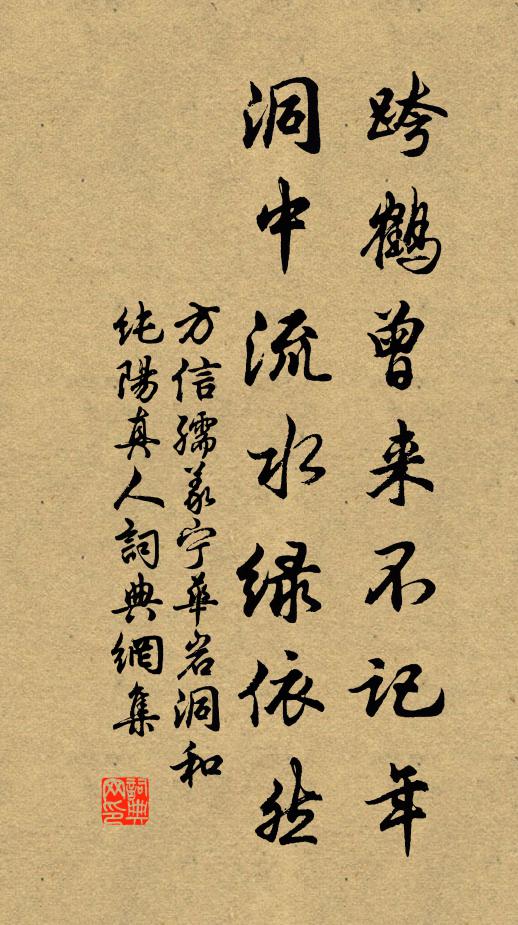 跨鹤曾来不记年
洞中流水绿依然
方信孺义宁华岩洞和
纯陽真人詞典網集
詞典网印